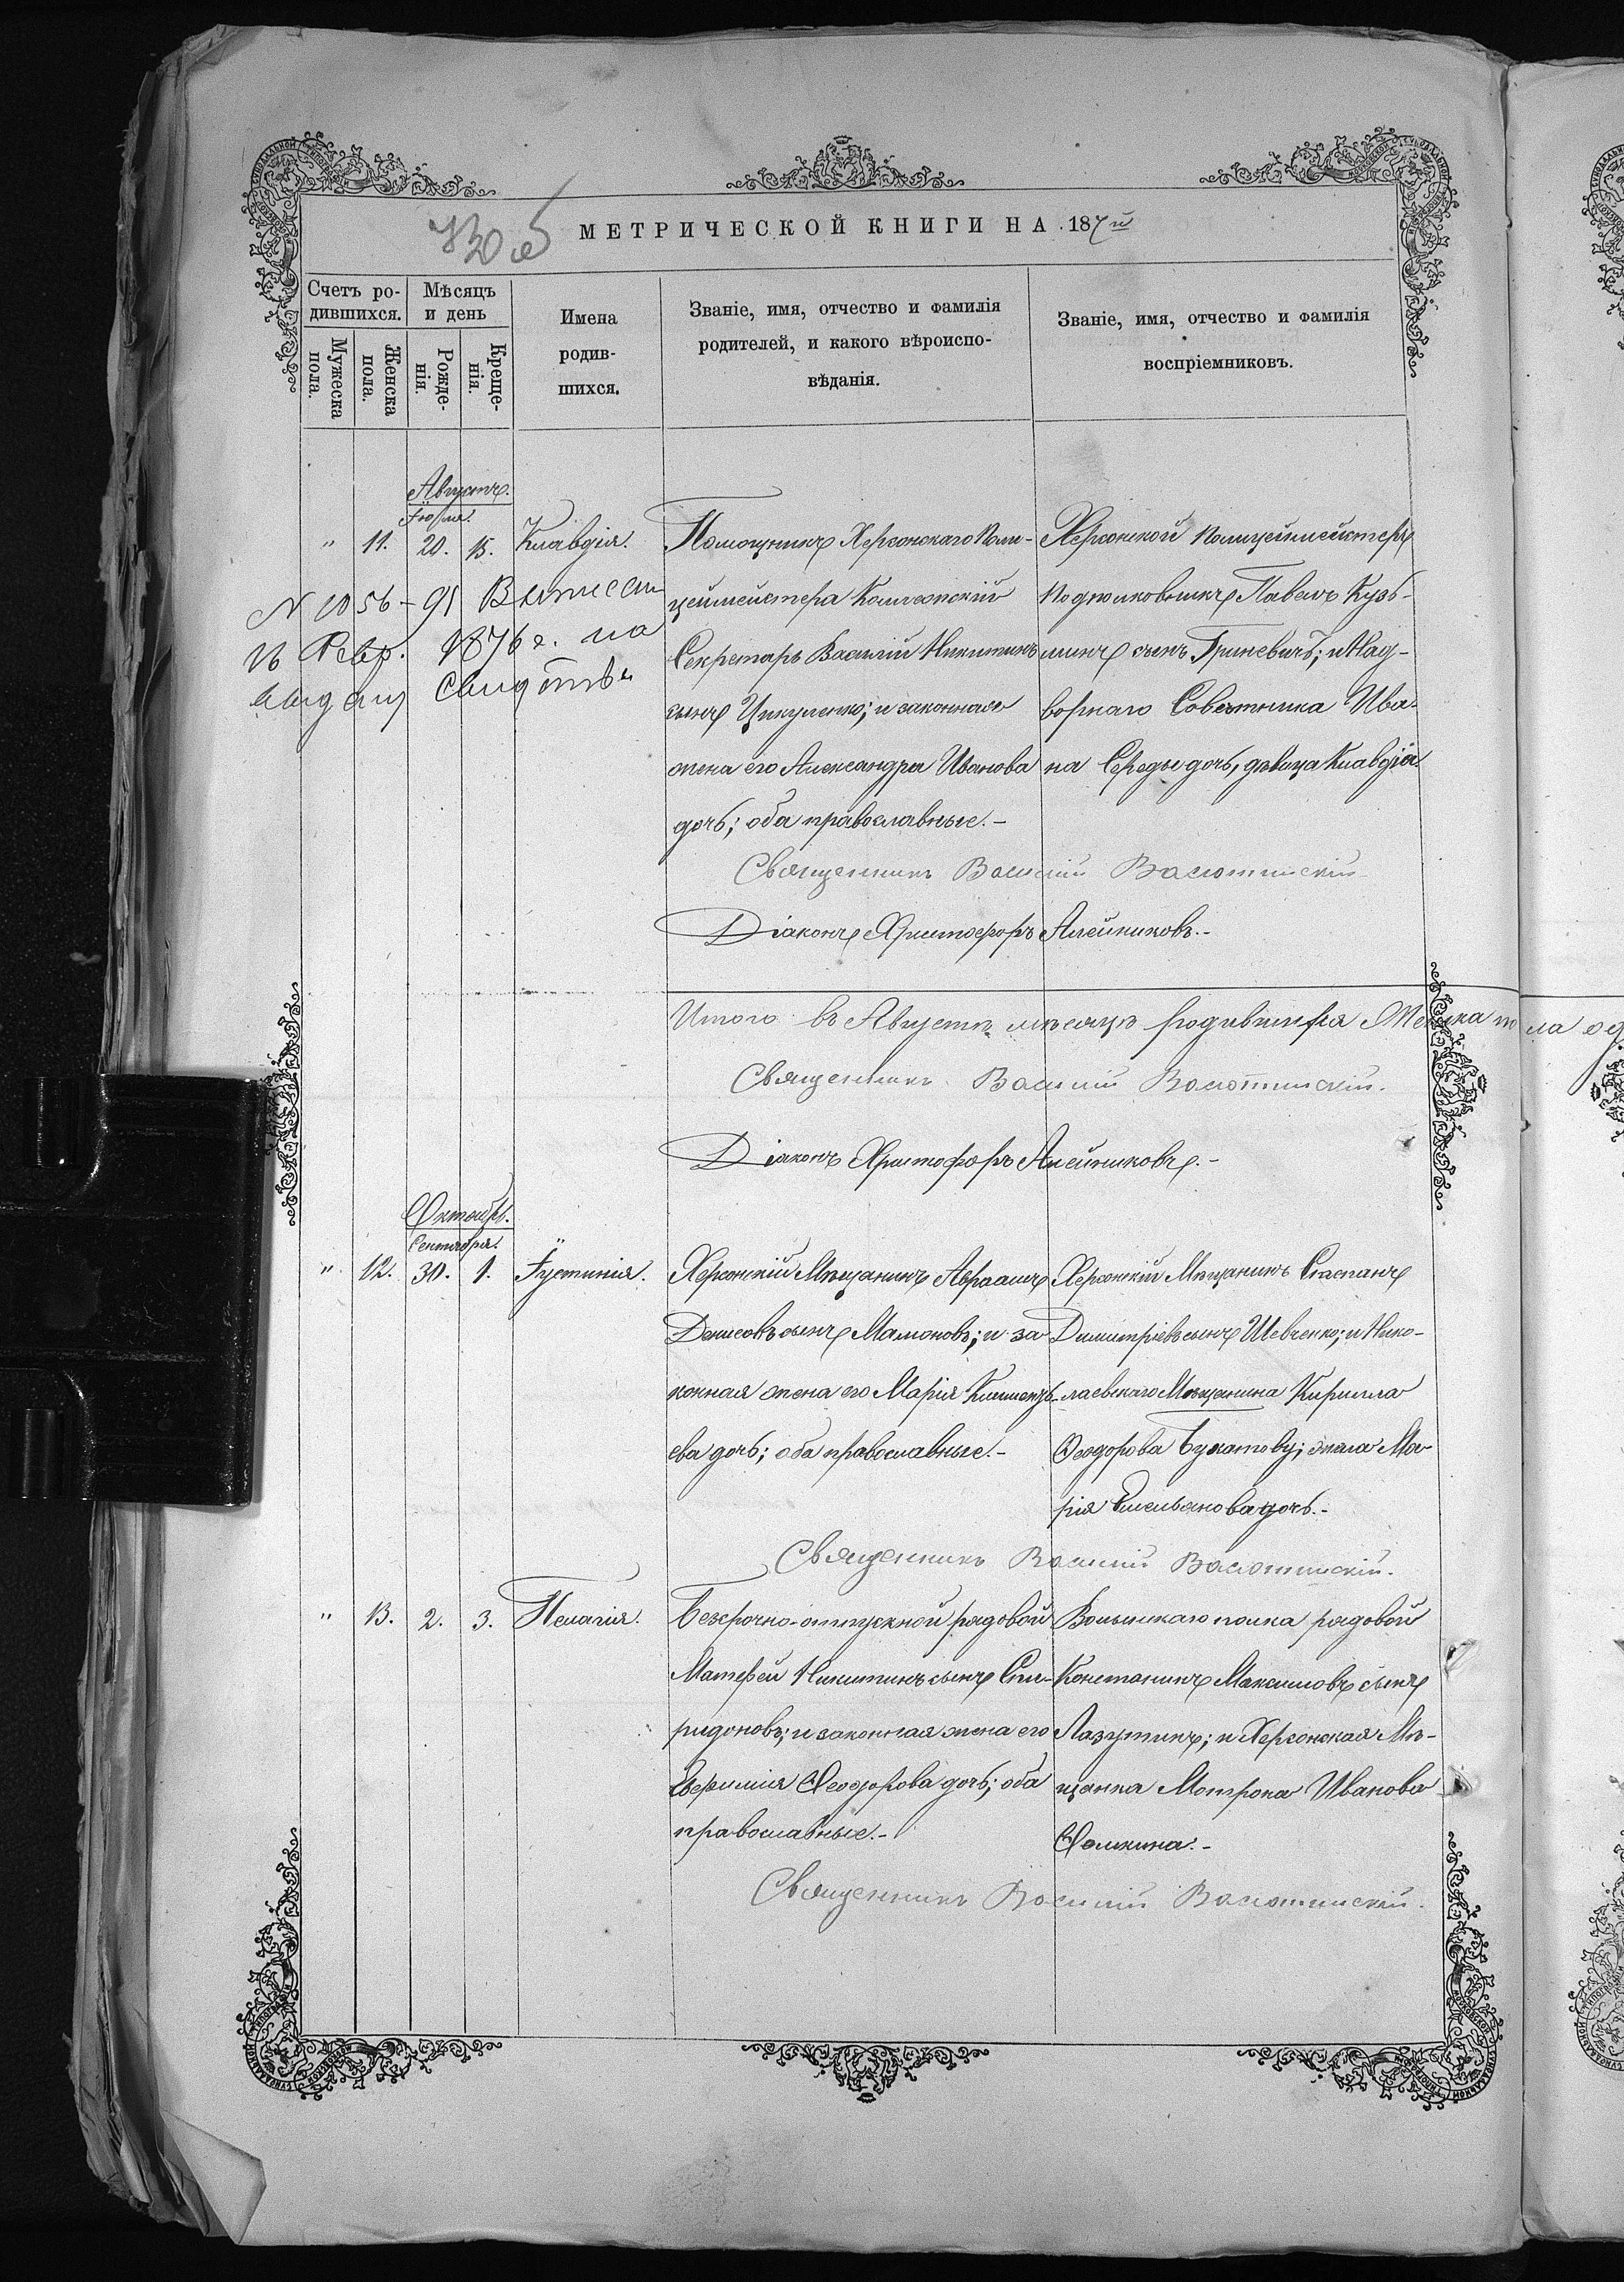 МЕТРИЧЕСКОЙ КНИГИ НА 187
Счетъ ро-
дившихся.
Мужеска
пола.
Женска
пола.
Мѣсяцъ
и день
Рожде-
нія.
Креще-
нія.
Имена
родив-
шихся.
Званіе, имя, отчество и фамилія
родителей, и какого вѣроиспо-
вѣданія.
Званіе, имя, отчество и фамилія
воспріемниковъ.
Августъ.
Іюля.
" 11. 20. 15. Клавдія.
Помощникъ Херсонскаго Поли-
цеймейстера Коллежскій
Секретарь Василій Никитинъ
сынъ Цикуленко; и законная
жена его Александра Иванова
дочь; оба православные.-
Херсонской Полицеймейстеръ
Подполковникъ Павелъ Кузь-
минъ сынъ Гриневичъ; и Над-
ворнаго Совѣтника Ива-
на Середы дочь, дѣвица Клавдія.
N 1056-91
Февр. 1876 г. на
Священникъ Василій Васютинскій
Діаконъ Христофоръ Алейниковъ.-
Итого въ Августѣ мѣсяцѣ родившихся Женска пола
Священникъ Василій Васютинскій.
Діаконъ Христофоръ Алейниковъ.-
Октябрь.
Сентября.
" 12. 30. 1. Іустинія.
Херсонскій Мѣщанинъ Авраамъ
Денисовъ сынъ Мамоновъ; и за
конная жена его Марія Климентъ-
ева дочь; оба православные.-
Херсонскій Мѣщанинъ Стаепанъ
Димитріевъ сынъ Шевченко; и Нико-
лаевскаго Мѣщанина Кирилла
Ѳеодорова Букатову; жена Ма-
рія Емельянова дочь.-
Священникъ Василій Васютинскій.
" 13. 2. 3. Пелагія.
Безсрочно-отпускной рядовой
Матфей Никитинъ сынъ Спи-
ридоновъ; и законная жена его
Ѳеодорова дочь; оба
православные.-
Волынскаго полка рядовой
Констанинъ Максимовъ сынъ
Лазутинъ; и Херсонская Мѣ-
щанка Мотрона Иванова
Ѳомкина.-
Священникъ Василій Васютинскій.